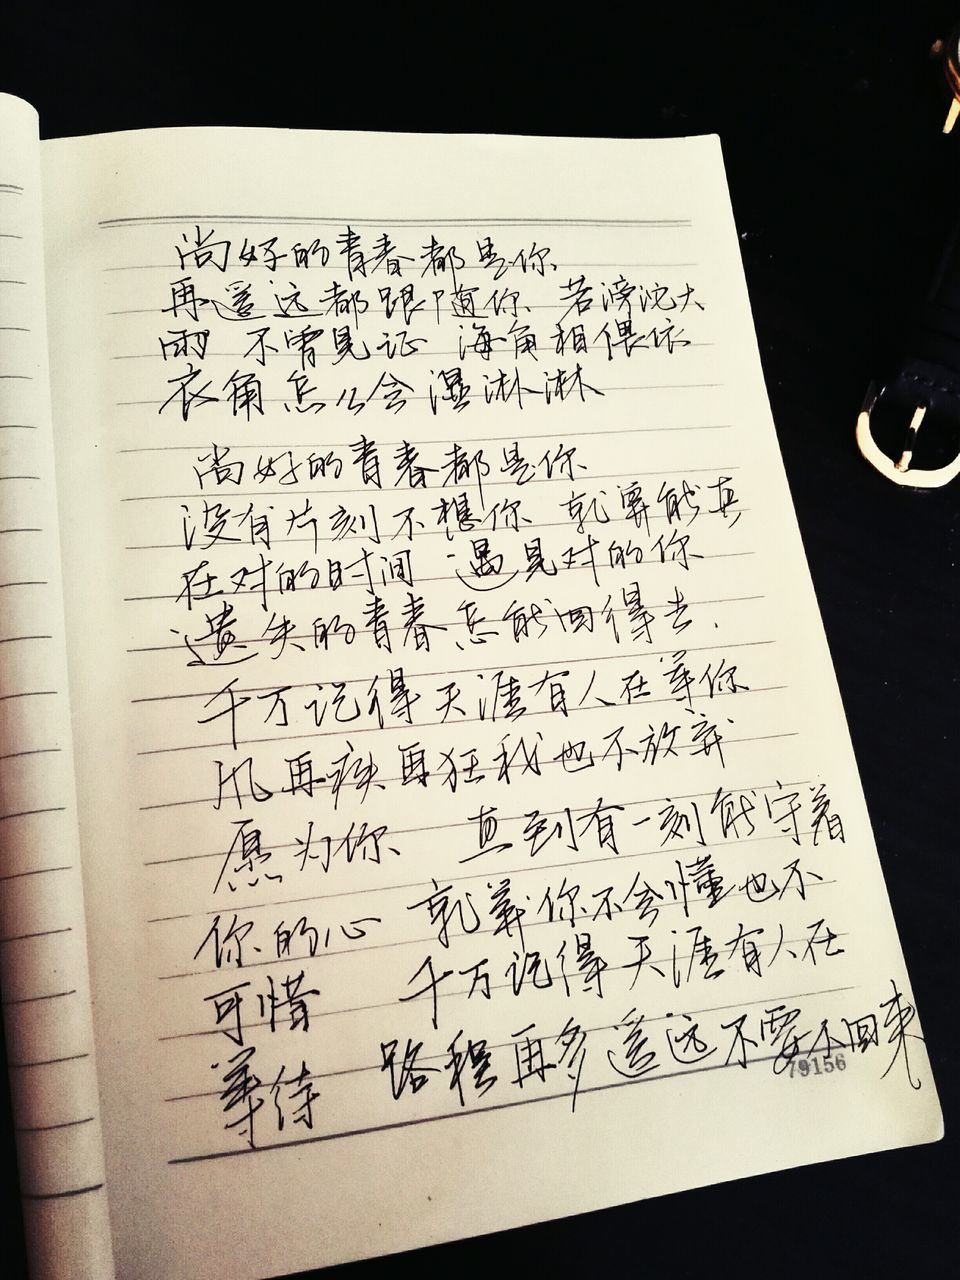 尚好的青春都是你
再遥远都跟随你 若滂沱大
雨 不曾见证 海角相偎依
衣角怎么会湿淋淋
尚好的青春都是你
没有片刻不想你 就要能真
在对的时间 遇见对的你
遗失的青春怎能回得去.
千万记得天涯有人在等你
风再疾再狂我也不放弃
愿为你 直到有一刻能守着
你的心 就算你不会懂也不
可惜 千万记得天涯有人在
等待 路程再多遥远不要不回来
79156